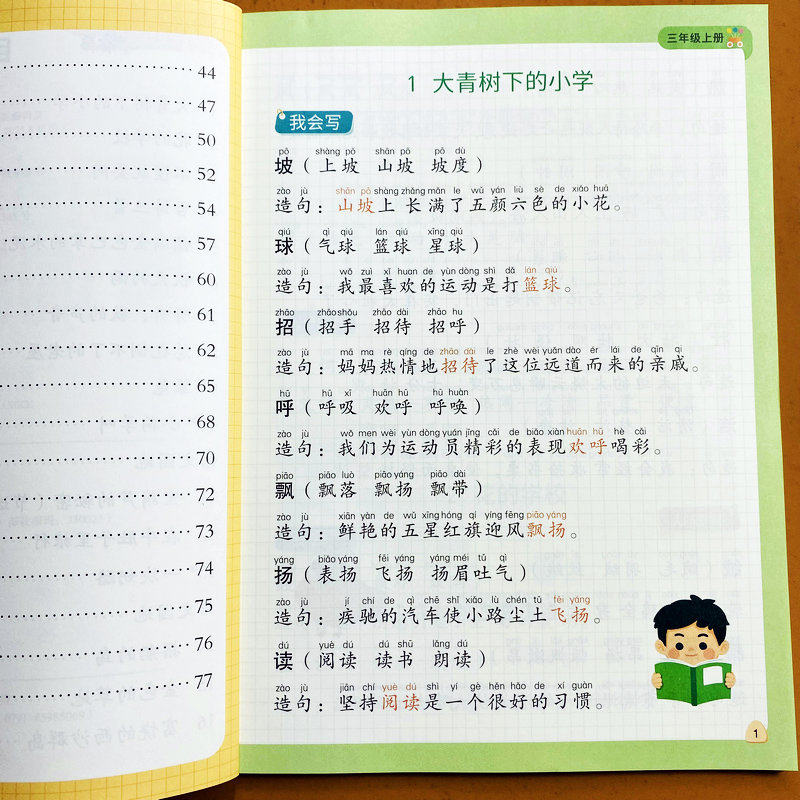 44
47
50
52
54
57
60
61
62
65
68
70
72
73
74
75
76
77
三年级上册
1 大青树下的小学
我会写
pō shàng pō shān pō pō dù
坡（上坡 山坡 坡度）
zào jù shān pō shàng zhǎng mǎn le wǔ yán liù sè de xiǎo huā
造句：山坡上长满了五颜六色的小花。
qiú qì qiú lán qiú xīng qiú
球（气球 篮球 星球）
zào jù wǒ zuì xǐ huan de yùn dòng shì dǎ lán qiú
造句：我最喜欢的运动是打篮球。
zhāo zhāo shǒu zhāo dài zhāo hu
招（招手 招待 招呼）
zào jù mā ma rè qíng de zhāo dài le zhè wèi yuǎn dào ér lái de qīn qi
造句：妈妈热情地招待了这位远道而来的亲戚。
hū hū xī huān hū hū huàn
呼（呼吸 欢呼 呼唤）
zào jù wǒ men wèi yùn dòng yuán jīng cǎi de biǎo xiàn huān hū hè cǎi
造句：我们为运动员精彩的表现欢呼喝彩。
piāo piāo luò piāo yáng piāo dài
飘（飘落 飘扬 飘带）
zào jù xiān yàn de wǔ xīng hóng qí yíng fēng piāo yáng
造句：鲜艳的五星红旗迎风飘扬。
yáng biǎo yáng fēi yáng yáng méi tǔ qì
扬（表扬 飞扬 扬眉吐气）
zào jù jí chí de qì chē shǐ xiǎo lù chén tǔ fēi yáng
造句：疾驰的汽车使小路尘土飞扬。
dú yuè dú dú shū lǎng dú
读（阅读 读书 朗读）
zào jù jiān chí yuè dú shì yí gè hěn hǎo de xí guàn
造句：坚持阅读是一个很好的习惯。
1